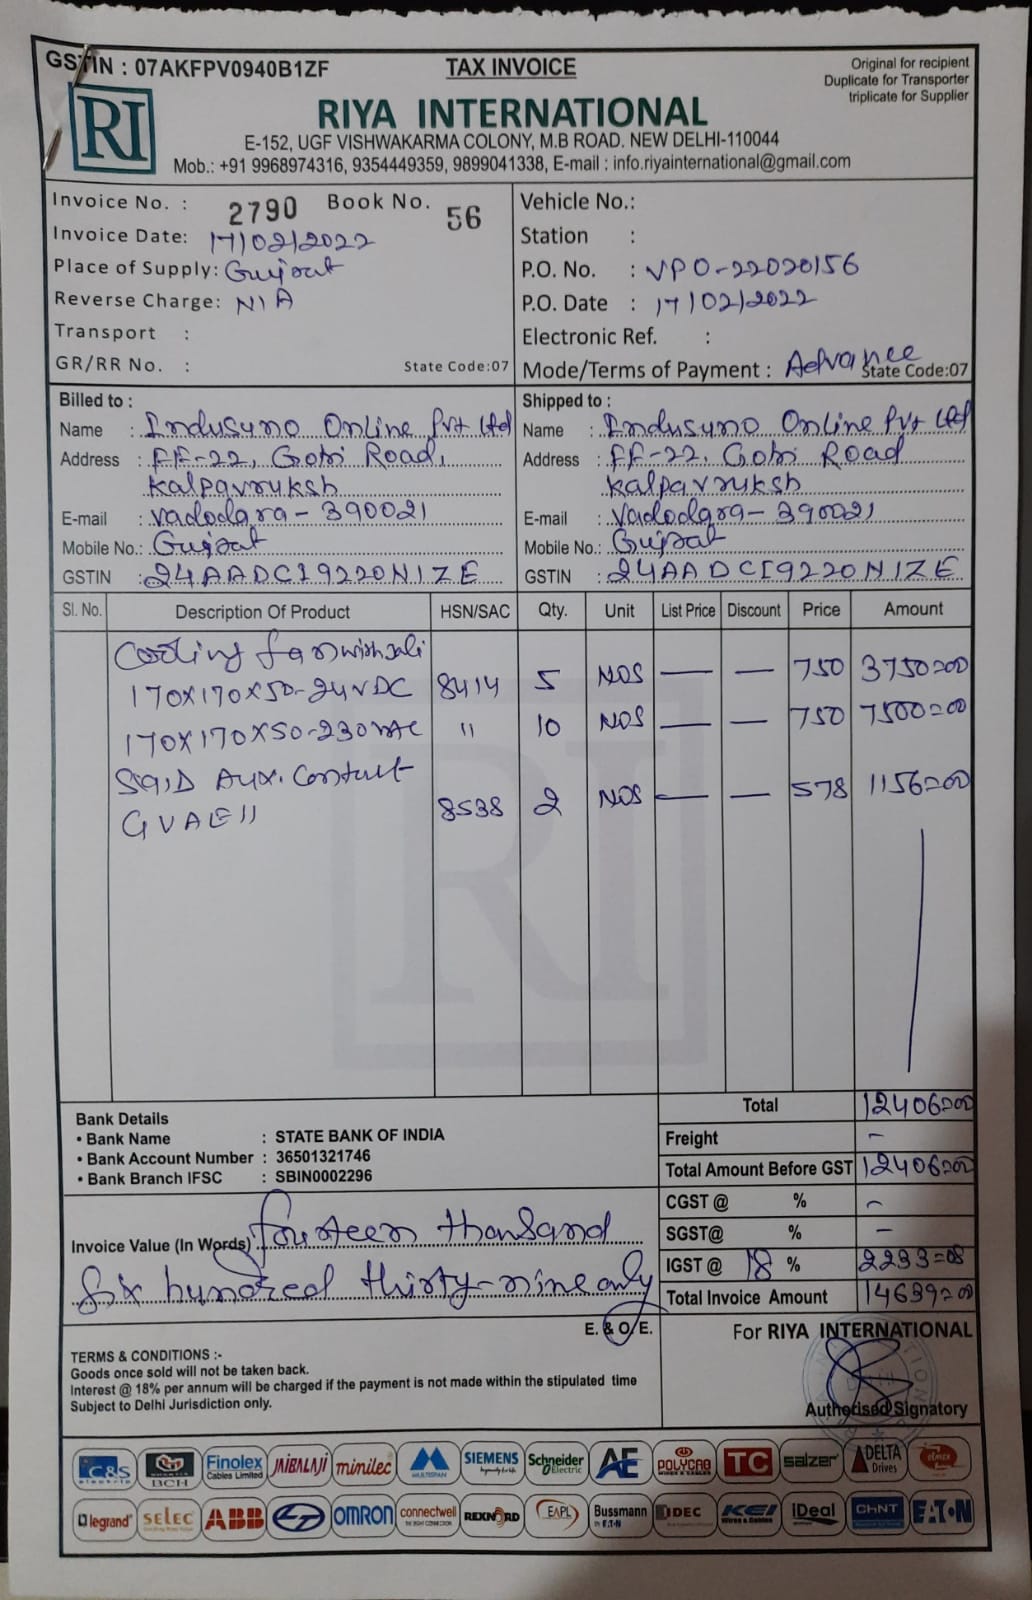 GSTIN : 07AKFPV0940B1ZF
TAX INVOICE
Original for recipient
Duplicate for Transporter
triplicate for Supplier
RI
RIYA INTERNATIONAL
E-152, UGF VISHWAKARMA COLONY, M.B ROAD. NEW DELHI-110044
Mob.: +91 9968974316, 9354449359, 9899041338, E-mail : info.riyainternational@gmail.com
Invoice No. : 2790 Book No. 56
Invoice Date: 17/02/2022
Place of Supply: Gujrat
Reverse Charge: N/A
Transport :
GR/RR No. : State Code:07
Vehicle No.:
Station :
P.O. No. : VPO-22020156
P.O. Date : 17/02/2022
Electronic Ref. :
Mode/Terms of Payment : Advance
State Code:07
Billed to :
Name : Indusuno Online Pvt Ltd
Address : FF-22, Gotri Road,
Kalpavruksh
E-mail : Vadodara - 390021
Mobile No.: Gujrat
GSTIN : 24AADCI9220N1ZE
Shipped to :
Name : Indusuno Online Pvt Ltd
Address : FF-22, Gotri Road
Kalpavruksh
E-mail : Vadodara - 390021
Mobile No.: Gujrat
GSTIN : 24AADCI9220N1ZE
Sl. No. Description Of Product HSN/SAC Qty. Unit List Price Discount Price Amount
Cooling fan with Jali
170X170X50-24VDC 8414 5 NOS — — 750 3750=00
170X170X50-230VAC " 10 NOS — — 750 7500=00
Aux. Contact
GVAE11 8538 2 NOS — — 578 1156=00
RI
Bank Details
• Bank Name : STATE BANK OF INDIA
• Bank Account Number : 36501321746
• Bank Branch IFSC : SBIN0002296
Total 12406=00
Freight -
Total Amount Before GST 12406=00
CGST @ % -
SGST@ % -
IGST @ 18 % 2233=08
Total Invoice Amount 14639=00
Invoice Value (In Words) fourteen thousand
Six hundred thirty-nine only
E. & O. E.
For RIYA INTERNATIONAL
Authorised Signatory
TERMS & CONDITIONS :-
Goods once sold will not be taken back.
Interest @ 18% per annum will be charged if the payment is not made within the stipulated time
Subject to Delhi Jurisdiction only.
C&S electric BCH Finolex Cables Limited JAIBALAJI minilec MULTISPAN SIEMENS Schneider Electric AE POLYCAB WIRES & CABLES TC salzer DELTA Drives
legrand selec ABB OMRON connectwell REXNORD EAPL Bussmann by EATON IDEC KEI Wires & Cables iDeal CHNT EATON